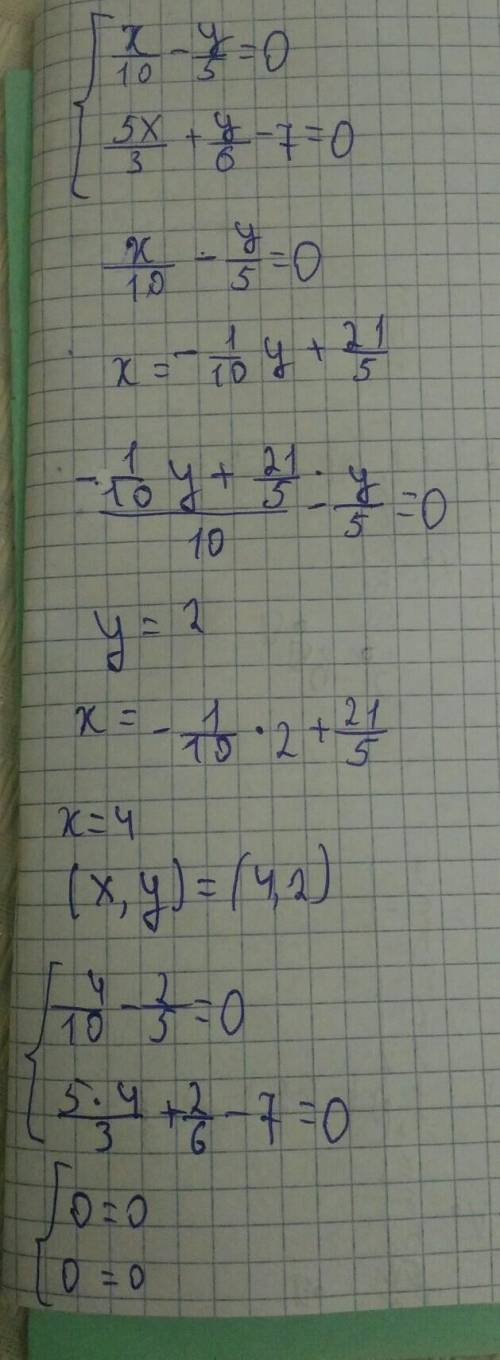 x/10 - y/5 = 0
5x/3 + y/6 - 7 = 0
x/10 - y/5 = 0
x = - 1/10 y + 21/5
(- 1/10 y + 21/5)/10 - y/5 = 0
y = 2
x = - 1/10 · 2 + 21/5
x = 4
(x, y) = (4, 2)
4/10 - 2/5 = 0
5·4/3 + 2/6 - 7 = 0
0 = 0
0 = 0